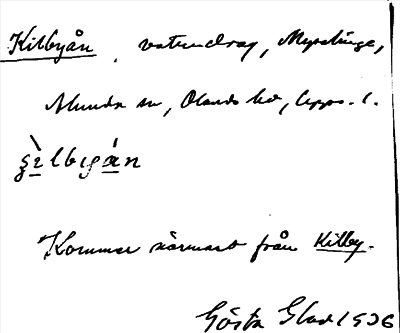 Kilbyån, vattendrag, Myrslinge,
Alunda sn, Olands hd, Upps. l.
şìlbigán
Kommer närmast från Kilby.
Gösta Glad 1936